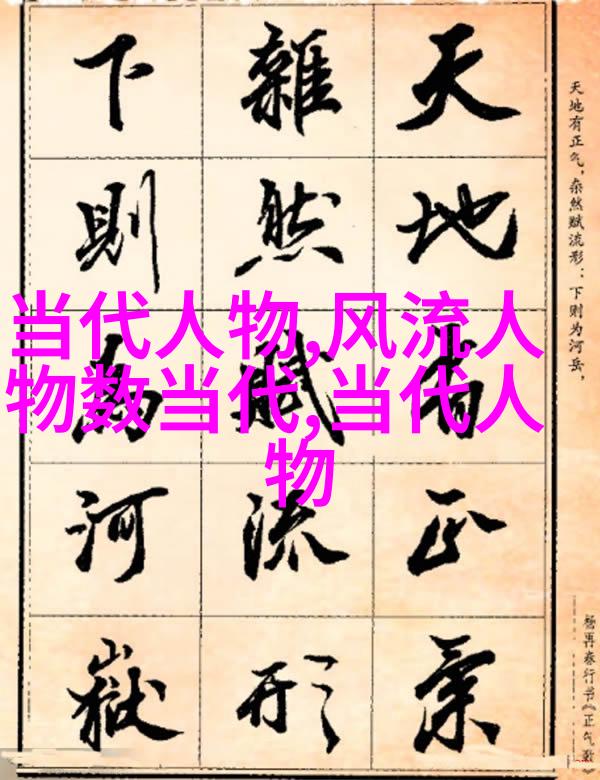 天地有正氣
雜然賦流形
下則為河嶽
天地有正气，杂然赋流形：下则为河岳，
杨再春行书《正气歌》
当代人物,风流人
物数当代,当代人
物